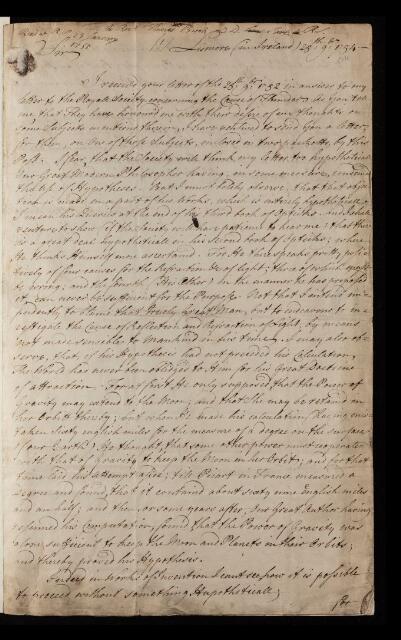 Lismore (in Ireland) 28th 9r 1754
Sir
I received your letter of the 28th 9r 1752 in answer to my
letter to the Royal Society concerning the Cause of Thunder. As you tell
me that They have honoured me with their desire of my thoughts on
some Subjects mentiond therein, I have ventured to send you a letter
for them, on One of those Subjects, enclosed in two packetts, by this
Post. I fear, that the Society will think my letter too hypothetical
Our Great Modern Philosopher having, in some measure, condemned
the use of Hypotheses. But I must boldly observe, that that
book is made on a part of his works, which is entirely hypothetical,
I mean his Queries at the end of the third book of Opticks. And I shall
venture to show, if the Society will have patience to hear me, that there
is a great deal hypotheticall in his second book of Opticks; where
He thinks Himself more ascertaind. For He there speaks pretty posi-
tively of four causes for the Refraction &c of light; three of which
to be wrong; and the fourth, His Ether, in the manner he has proposed
it, can never be sufficient for the Purpose. Not that I intend im-
pudently to blame that truely Great Man, but to endeavour to in-
vestigate the Cause of Reflection and Refraction of light, by means
not made sensible to Mankind in his time. I may also ob-
serve, that, if his Hypotheses had not preceded his Calculation,
The World has never been obliged to Him for his Great Doctrine
of attraction. For at first He only supposed that the Power of
Gravity may extend to the Moon; and that she may be retaind in
her Orbitt thereby; but when He made his calculation, Having mis-
taken Sixty english miles for the measure of a degree on the surface
of our Earth, He thought, that some other power must cooperate
with that of Gravity to keep the Moon in her Orbitt; and for that
time laid his attempt aside; till Picart in France measured a
degree and found, that it containd about sixty nine English miles
and an half; and then, or some years after, Our Great Author having
resumed his Computation, found that the Power of Gravity was
alone sufficient to keep the Moon and Planets in their Orbits;
and thereby proved his Hypothesis.
Indeed in works of Invention I cant see how it is possible
to proceed without something Hypotheticall;